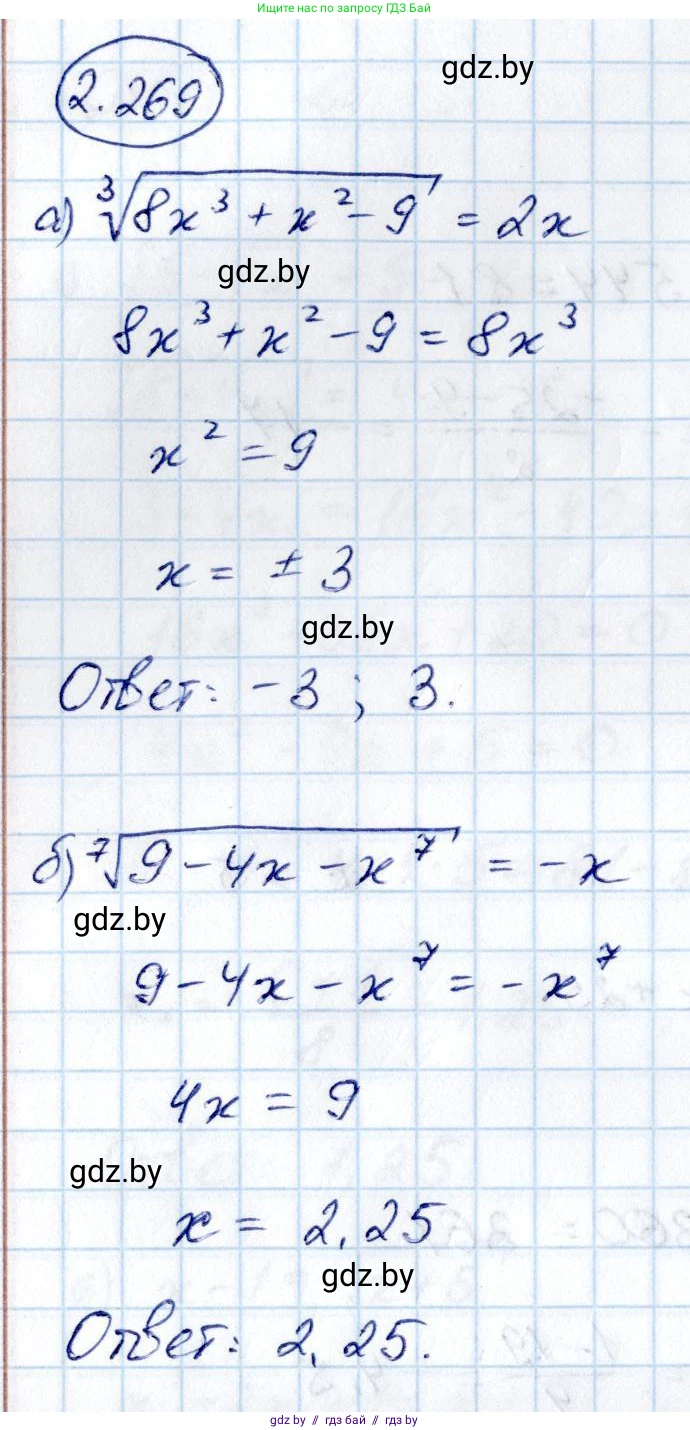 Ищите нас по запросу ГДЗ Бай
2.269
gdz.by
а) ∛(8x³ + x² - 9) = 2x
gdz.by
8x³ + x² - 9 = 8x³
x² = 9
x = ± 3
gdz.by
Ответ: -3 ; 3.
б) ⁷√(9 - 4x - x⁷) = - x
gdz.by
9 - 4x - x⁷ = - x⁷
4x = 9
gdz.by
x = 2,25
gdz.by
Ответ: 2,25.
gdz by // гдз бай // gdz by